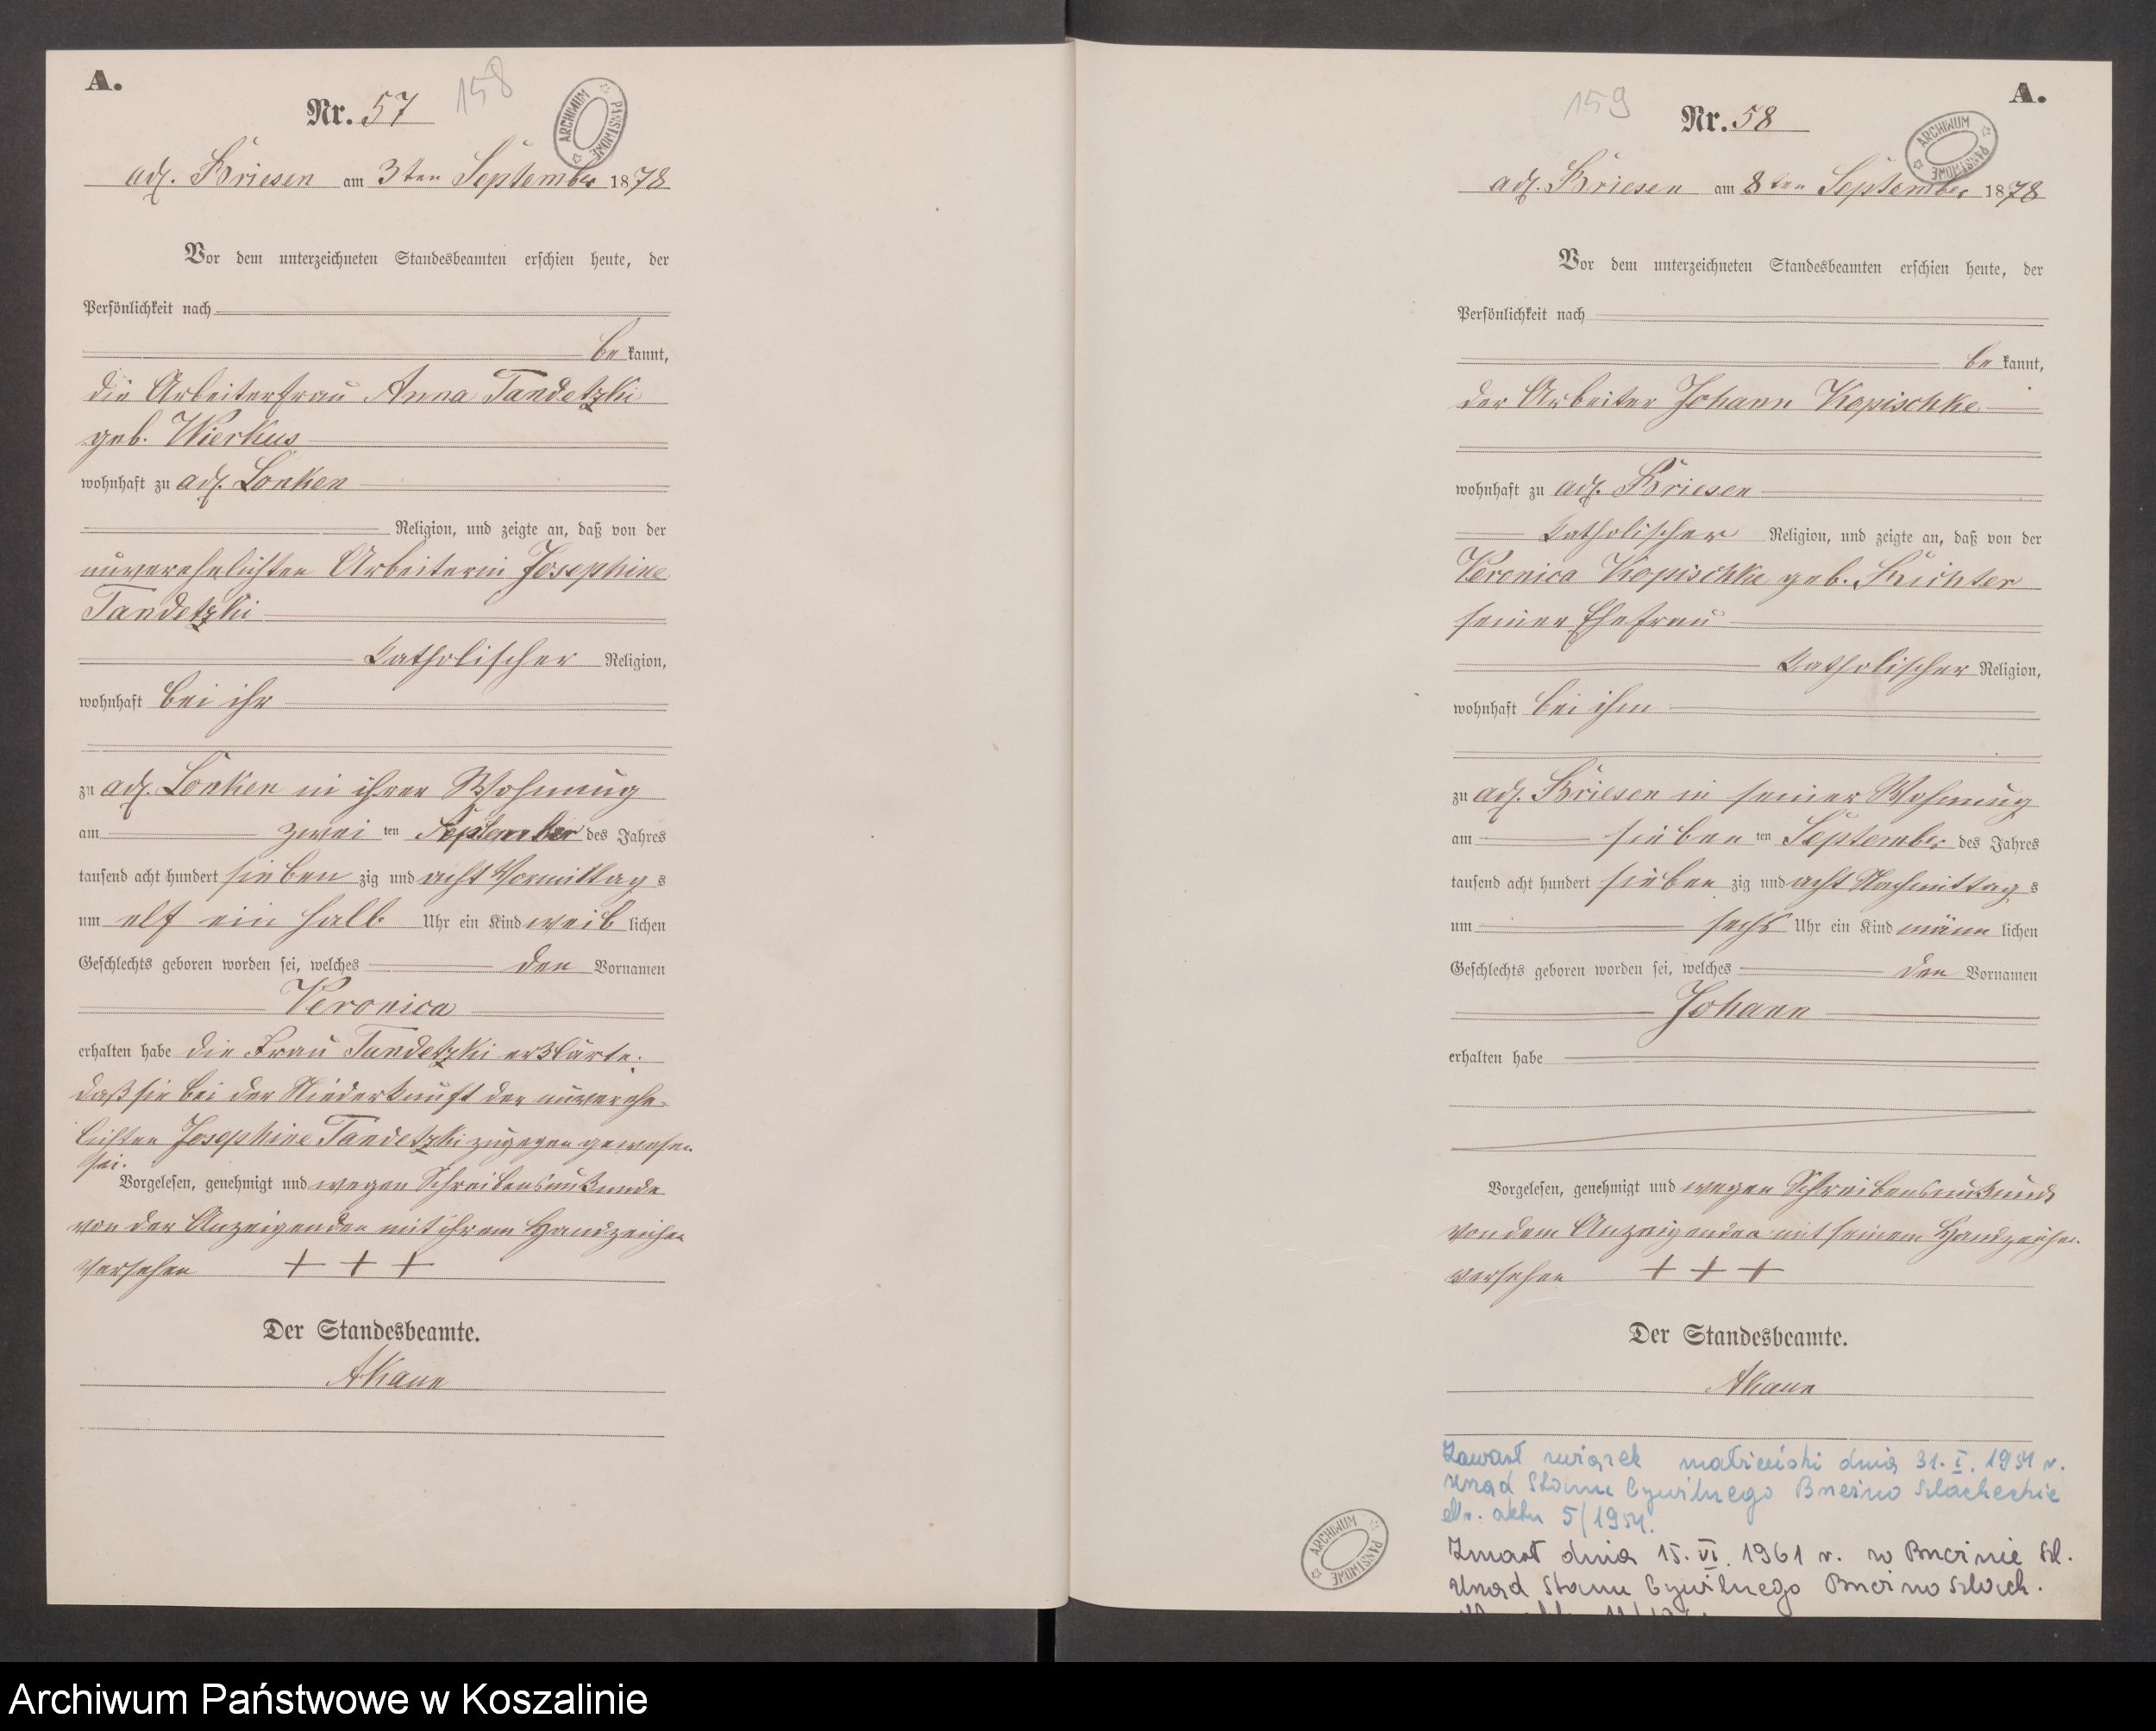 A.
Nr. 57
158
ARCHIWUM PAŃSTWOWE
adl. Briesen am 3ten September 1878
Vor dem unterzeichneten Standesbeamten erschien heute, der
Persönlichkeit nach
be kannt,
die Arbeiterfrau Anna Tandetzki
geb. Wierkus
wohnhaft zu adl. Lonken
Religion, und zeigte an, daß von der
unverehelichten Arbeiterin Josephine
Tandetzki
katholischer Religion,
wohnhaft bei ihr
zu adl. Lonken in ihrer Wohnung
am zwei ten September des Jahres
tausend acht hundert sieben zig und acht Vormittag s
um elf ein halb Uhr ein Kind weib lichen
Geschlechts geboren worden sei, welches den Vornamen
Veronica
erhalten habe die Frau Tandetzki erklärte.
daß sie bei der Niederkunft der unverehe-
lichten Josephine Tandetzki zugegen gewesen
sei.
Vorgelesen, genehmigt und wegen Schreibensunkunde
von der Anzeigenden mit ihrem Handzeichen
versehen + + +
Der Standesbeamte.
A.
159
Nr. 58
ARCHIWUM PAŃSTWOWE
adl. Briesen am 8ten September 1878
Vor dem unterzeichneten Standesbeamten erschien heute, der
Persönlichkeit nach
be kannt,
der Arbeiter Johann Kopischke
wohnhaft zu adl. Briesen
katholischer Religion, und zeigte an, daß von der
Veronica Kopischke geb. Richter
seiner Ehefrau
katholischer Religion,
wohnhaft bei ihm
zu adl. Briesen in seiner Wohnung
am sieben ten September des Jahres
tausend acht hundert sieben zig und acht Nachmittag s
um sechs Uhr ein Kind männ lichen
Geschlechts geboren worden sei, welches den Vornamen
Johann
erhalten habe
Vorgelesen, genehmigt und wegen Schreibensunkunde
von dem Anzeigenden mit seinem Handzeichen
versehen + + +
Der Standesbeamte.
Zawarł związek małżeński dnia 31. I. 1951 r.
Urząd Stanu Cywilnego Brzeźno Szlacheckie
Nr. aktu 5/1951.
ARCHIWUM PAŃSTWOWE
Zmarł dnia 15. VI. 1961 r. w Brzeźnie Szl.
Urząd Stanu Cywilnego Brzeźno Szlach.
Archiwum Państwowe w Koszalinie